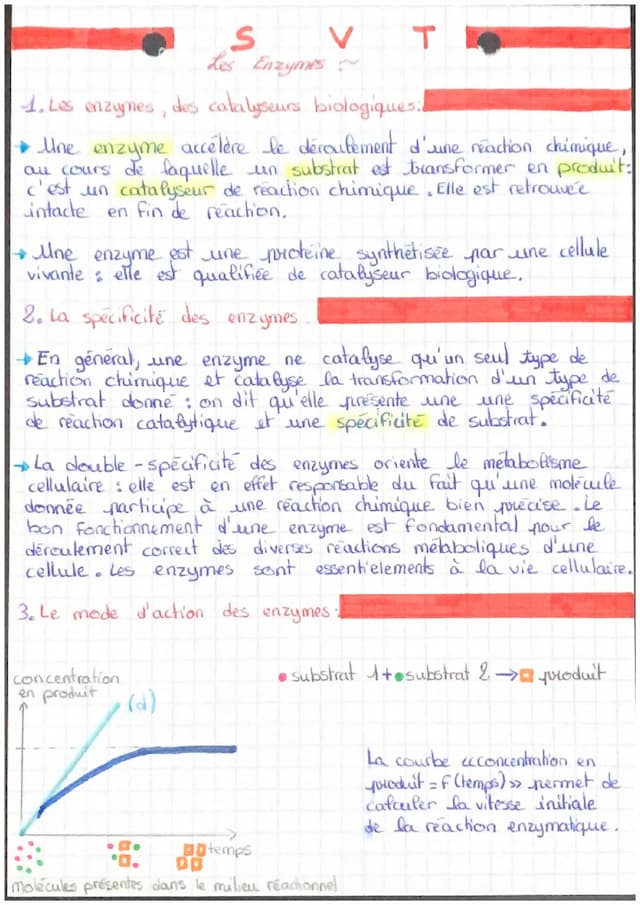 S V T
Les Enzymes :~
1. Les enzymes, des catalyseurs biologiques:
→ Une enzyme accélère le déroulement d'une réaction chimique,
au cours de laquelle un substrat est transformer en produit:
c'est un catalyseur de réaction chimique. Elle est retrouvée
intacte en fin de réaction.
→ Une enzyme est une protéine synthétisée par une cellule
vivante : elle est qualifiée de catalyseur biologique.
2. La spécificité des enzymes.
→ En général, une enzyme ne catalyse qu'un seul type de
réaction chimique et catalyse la transformation d'un type de
substrat donné : on dit qu'elle présente une une spécificité
de réaction catalytique et une spécificité de substrat.
→ La double-spécificité des enzymes oriente le métabolisme
cellulaire : elle est en effet responsable du fait qu'une molécule
donnée participe à une réaction chimique bien précise. Le
bon fonctionnement d'une enzyme est fondamental pour le
déroulement correct des diverses réactions métaboliques d'une
cellule. Les enzymes sont essentielements à la vie cellulaire.
3. Le mode d'action des enzymes:
concentration
en produit
(d)
temps
molécules présentes dans le milieu réactionnel
substrat 1 + substrat 2 → produit
La courbe « concentration en
produit = f (temps) » permet de
calculer la vitesse initiale
de la réaction enzymatique.